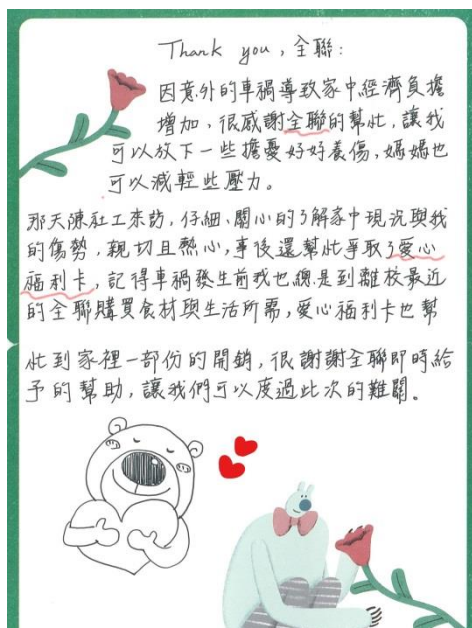 Thank you, 全聯:
因意外的車禍導致家中經濟負擔
增加、很感謝全聯的幫忙,讓我
可以放下一些擔憂好好養傷,媽媽也
可以減輕些壓力。
那天陳社工來訪,仔細、關心的了解家中現況與我
的傷勢,親切且熱心,事後還幫忙爭取了愛心
福利卡,記得車禍發生前我也總是到離校最近
的全聯購買食材與生活所需,愛心福利卡也幫
忙到家裡一部份的開銷,很謝謝全聯即時給
予的幫助,讓我們可以度過此次的難關。